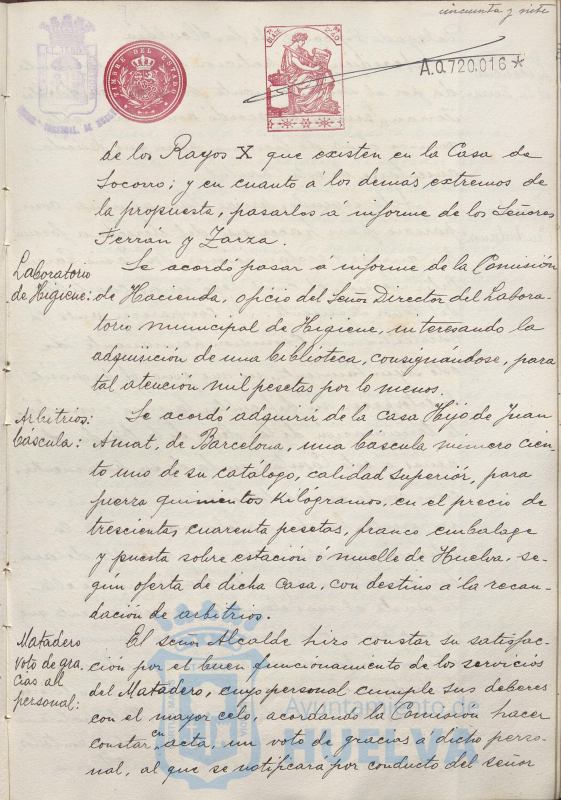 cincuenta y siete
TIMBRE DEL ESTADO
A.0.720.016*
de los Rayos X que existen en la Casa de
Socorro; y en cuanto á los demás extremos de
la propuesta, pasarlos á informe de los Señores
Ferrán y Zarza.
Laboratorio
de Higiene:
Se acordó pasar á informe de la Comisión
de Hacienda, oficio del Señor Director del Labora-
torio municipal de Higiene, interesando la
adquisición de una biblioteca, consignándose, para
tal atención mil pesetas por lo menos.
Arbitrios:
Báscula:
Se acordó adquirir de la Casa Hijo de Juan
Amat, de Barcelona, una báscula número cien-
to uno de su catálogo, calidad superior, para
fuerza quinientos Kilógramos, en el precio de
trescientas cuarenta pesetas, franco embalage
y puesta sobre estación ó muelle de Huelva, se-
gún oferta de dicha Casa, con destino á la recau-
dación de arbitrios.
Matadero
voto de gra
cias al
personal:
El señor Alcalde hizo constar su satisfac-
ción por el buen funcionamiento de los servicios
del Matadero, cuyo personal cumple sus deberes
con el mayor celo, acordando la Comisión hacer
constar en acta, un voto de gracias á dicho perso-
nal, al que se notificará por conducto del señor
Ayuntamiento de
HUELVA